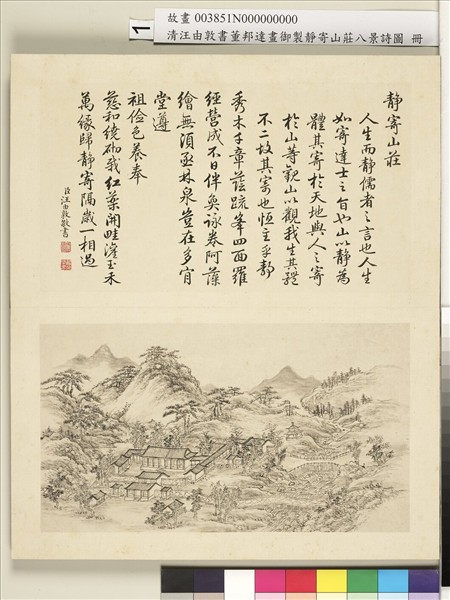 1
故畫 003851N000000000
清汪由敦書董邦達畫御製靜寄山莊八景詩圖 冊
靜寄山莊
人生而靜儒者之言也人生
如寄達士之旨也山以靜為
體其寄於天地與人之寄
於山等觀山以觀我生其體
不二故其寄也恒主乎靜
秀木千章蔭疏峯四面羅
經營成不日伴奐詠卷阿藻
繪無須亟林泉豈在多肯
堂遵
祖儉色養奉
慈和繞砌栽紅葉開畦滋玉禾
萬緣歸靜寄隔歲一相過
臣汪由敦敬書